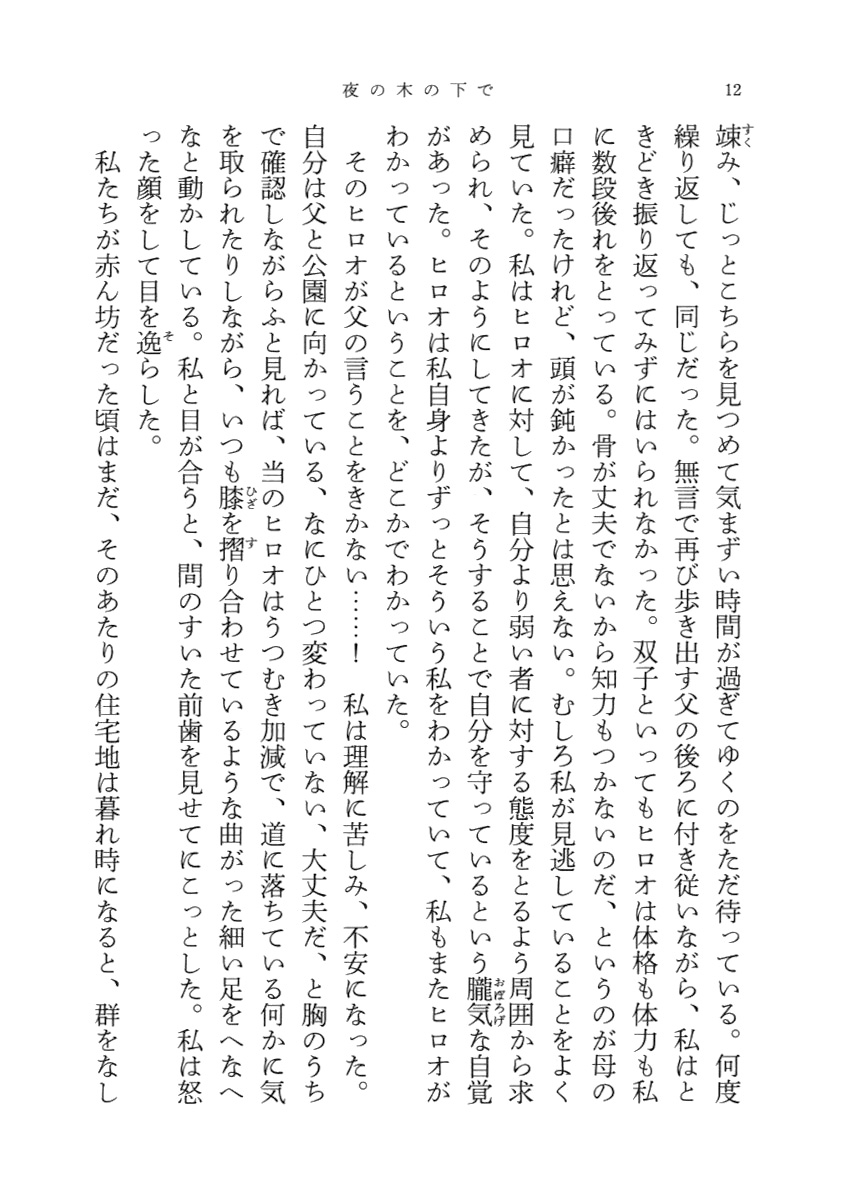 夜の木の下で
12
竦み、じっとこちらを見つめて気まずい時間が過ぎてゆくのをただ待っている。何度
すく
繰り返しても、同じだった。無言で再び歩き出す父の後ろに付き従いながら、私はと
きどき振り返ってみずにはいられなかった。双子といってもヒロオは体格も体力も私
に数段後れをとっている。骨が丈夫でないから知力もつかないのだ、というのが母の
口癖だったけれど、頭が鈍かったとは思えない。むしろ私が見逃していることをよく
見ていた。私はヒロオに対して、自分より弱い者に対する態度をとるよう周囲から求
められ、そのようにしてきたが、そうすることで自分を守っているという朧気な自覚
おぼろげ
があった。ヒロオは私自身よりずっとそういう私をわかっていて、私もまたヒロオが
わかっているということを、どこかでわかっていた。
そのヒロオが父の言うことをきかない……！　私は理解に苦しみ、不安になった。
自分は父と公園に向かっている、なにひとつ変わっていない、大丈夫だ、と胸のうち
で確認しながらふと見れば、当のヒロオはうつむき加減で、道に落ちている何かに気
を取られたりしながら、いつも膝を摺り合わせているような曲がった細い足をへなへ
ひざ
す
なと動かしている。私と目が合うと、間のすいた前歯を見せてにこっとした。私は怒
った顔をして目を逸らした。
そ
私たちが赤ん坊だった頃はまだ、そのあたりの住宅地は暮れ時になると、群をなし